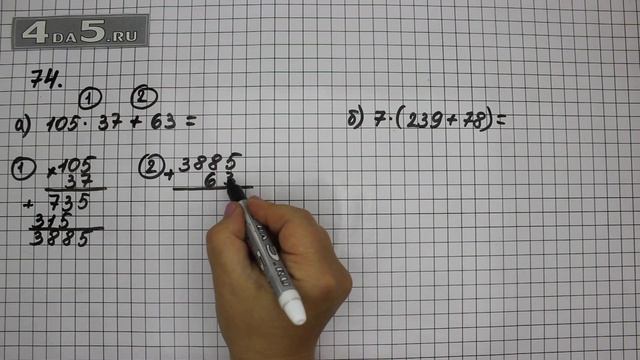 4DA5.RU
74.
1 2
а) 105 · 37 + 63 =
б) 7 · (239 + 78) =
1 × 105
37
+ 735
315
3885
2 + 3885
63